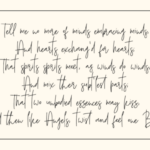 Tell me no more of minds embracing minds,
And hearts exchang'd for hearts;
That spirits spirits meet, as winds do winds,
And mix their subt'lest parts;
That two unbodied essences may kiss,
then like Angels, twist and feel one B